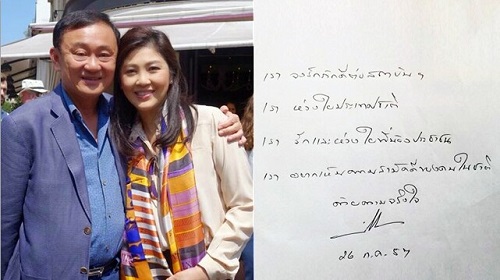 เรา จงรักภักดีต่อสถาบันฯ
เรา ห่วงใยประเทศชาติ
เรา รักและห่วงใยพี่น้องประชาชน
เรา อยากเห็นความสามัคคีของคนในชาติ
ด้วยความจริงใจ
26 ก.ค. 57